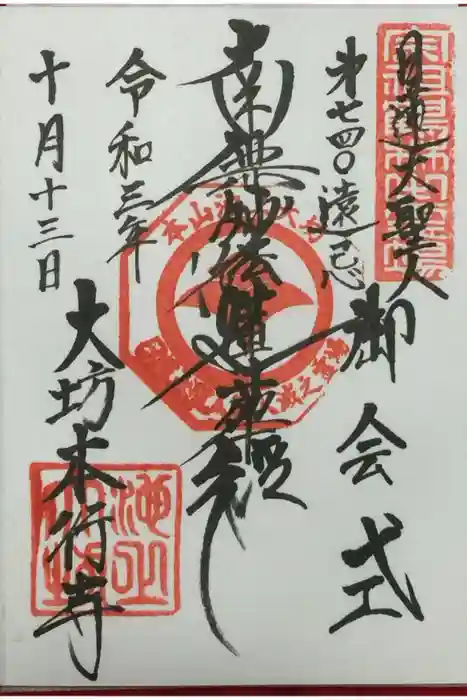 日蓮大聖人
第七四〇遠忌
御会式
南無妙法蓮華経
令和三年
十月十三日
大坊本行寺